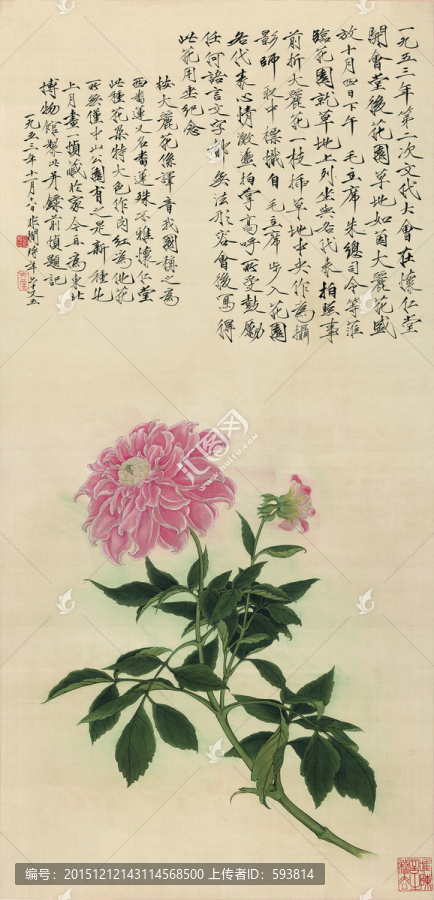 一九五三年第二次文代大會在懷仁堂
開會堂後花園草地如茵大麗花盛
放十月四日下午 毛主席 朱總司令等蒞
臨花園就草地上列坐與各代表拍照事
前折大麗花一枝插草地中央作為攝
影師取中標識自毛主席步入花園
各代表心情激盪拍掌高呼所受鼓勵
任何語言文字都無法形容會後寫得
此花用垂紀念
按大麗花係譯音我國稱之為
西番蓮又名番蓮殊不雅懷仁堂
此種花朵特大色作肉紅為他花
所無僅中山公園有之是新種也
上月畫一幀藏於家今且為東北
博物館製此并錄前幀題記
一九五三年十一月六日非闇時年六十又五
编号：20151212143114568500 上传者ID：593814